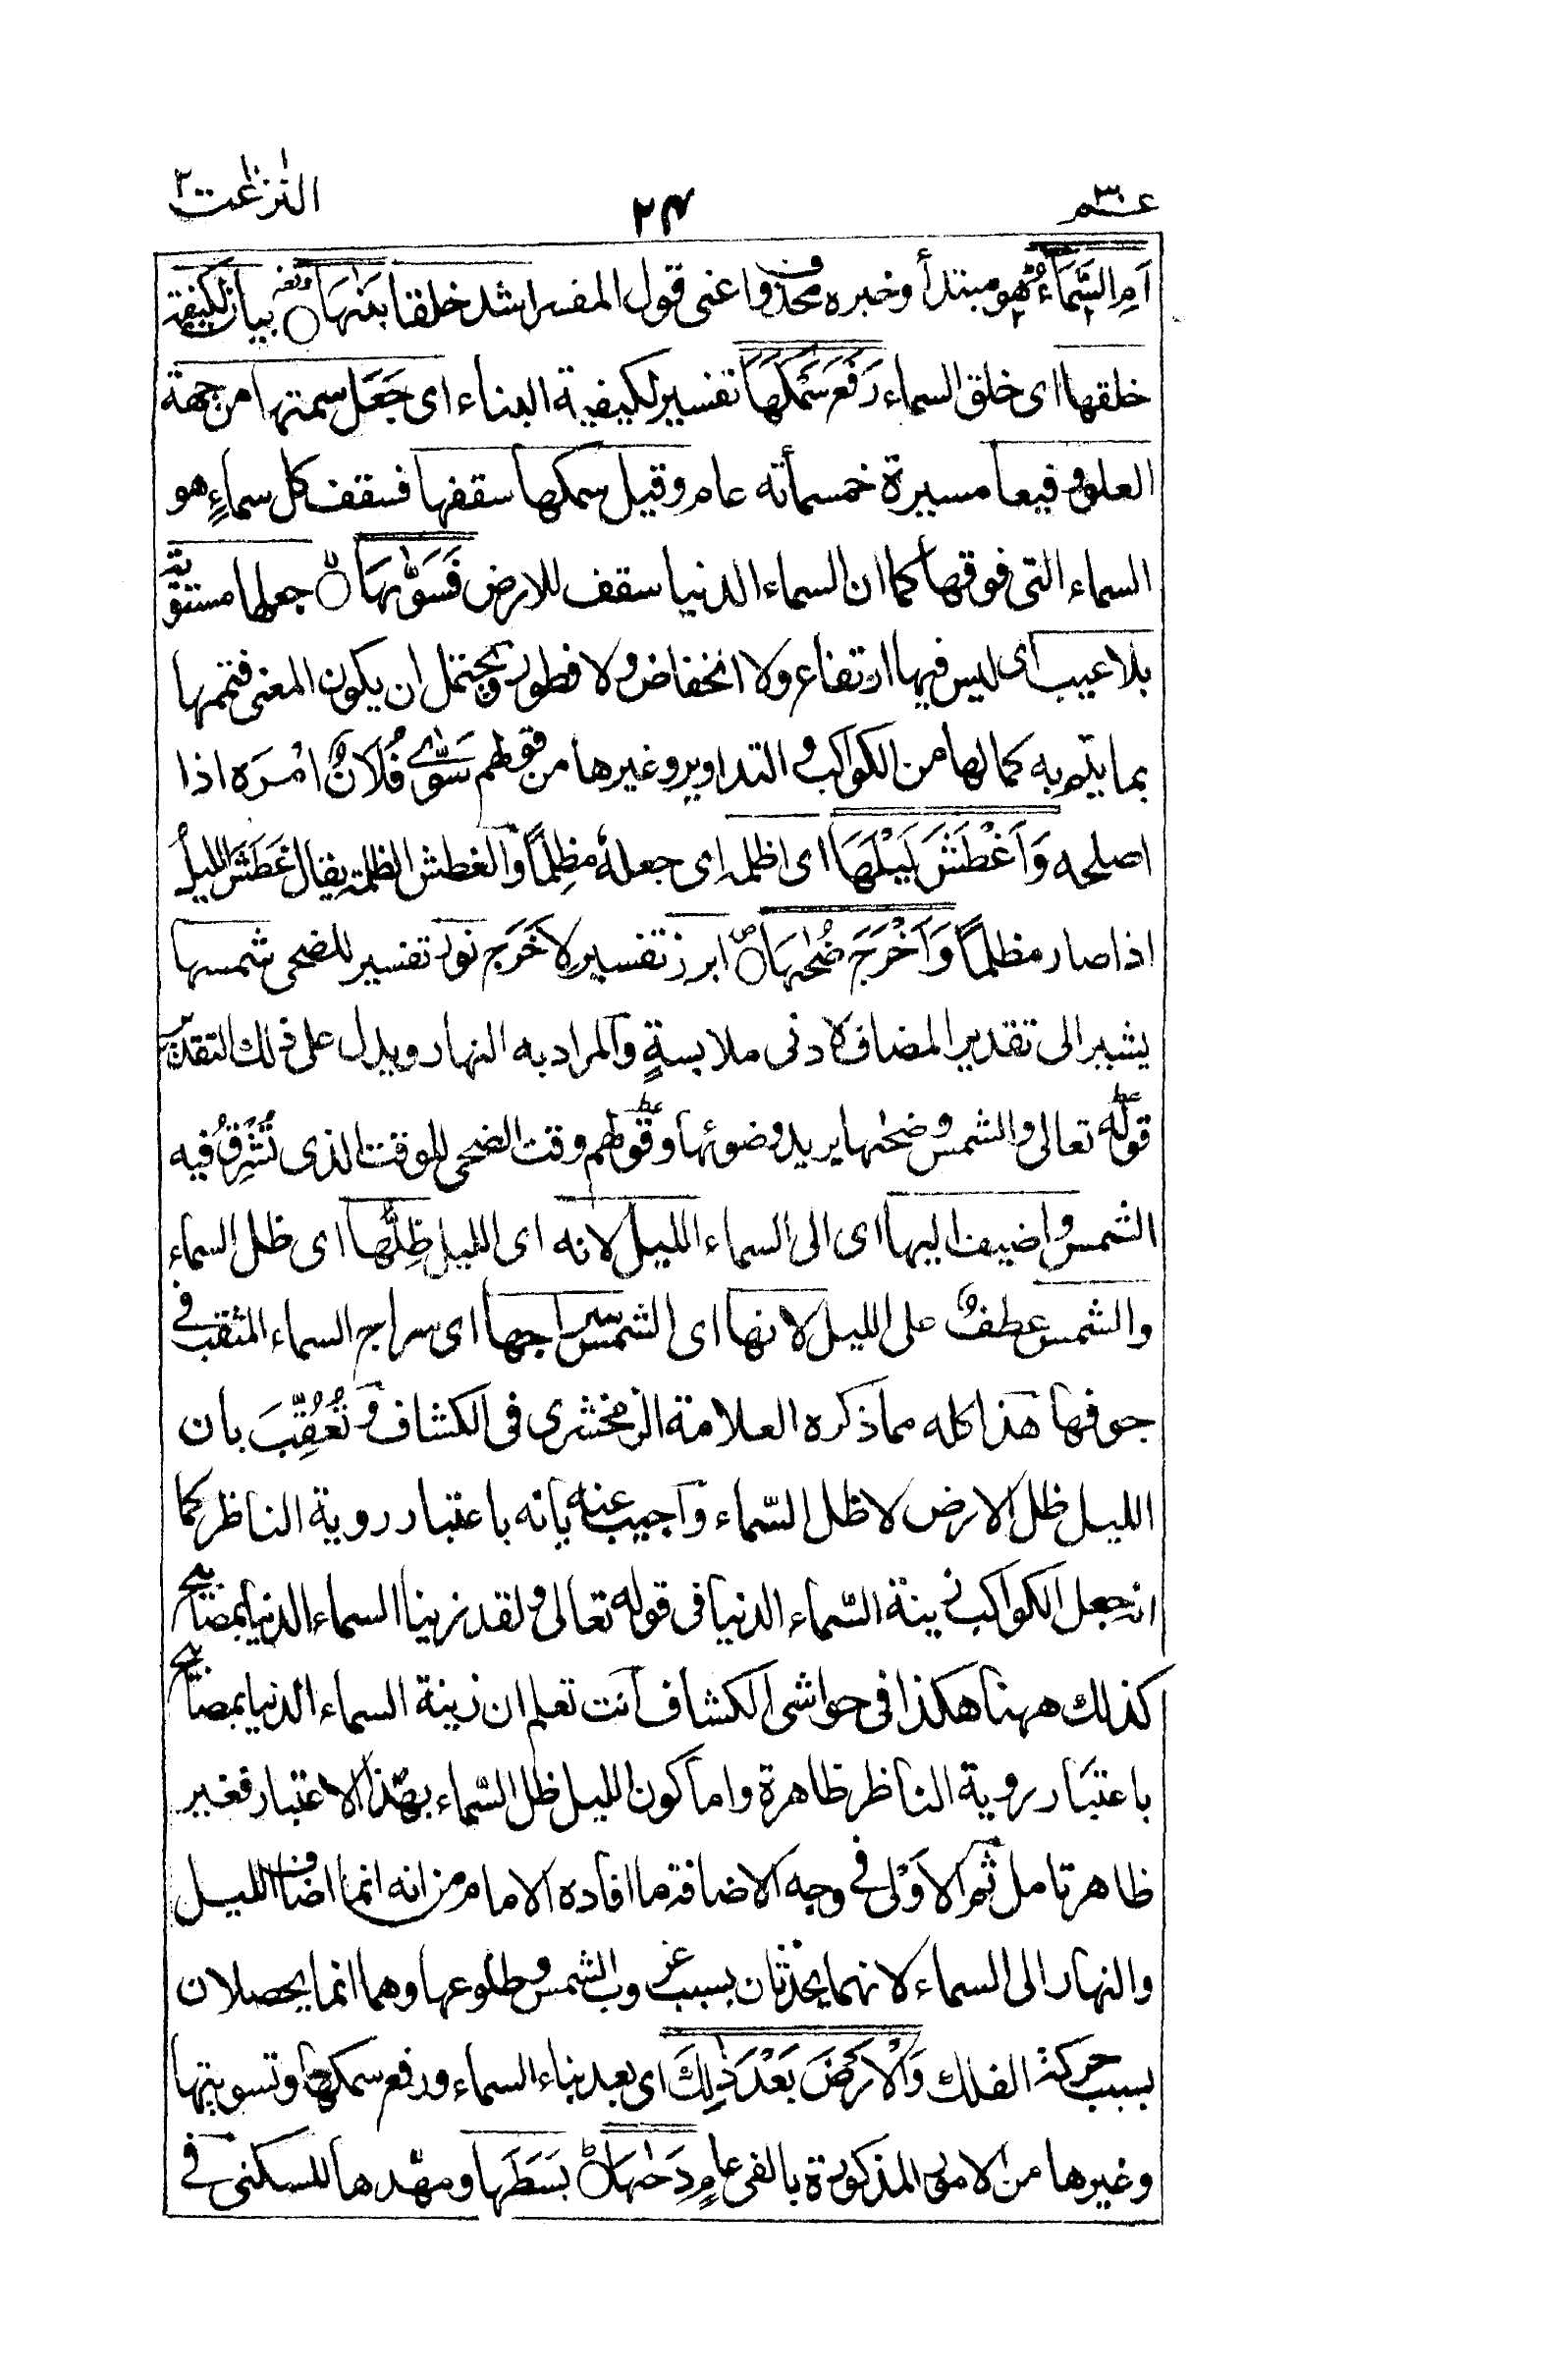 عــم ٣٠
٢٤
النزعت ٢
اَمِ السَّمَآءُ هو مبتدأ وخبره محذوف اعنى قول المفسر اشد خلقا بَنٰىهَا ○ بيان لكيفية
خلقها اى خلق السماء رَفَعَ سَمْكَهَا تفسير لكيفية البناء اى جَعَلَ سمتها من جهة
العلو رفيعا مسيرة خمسمأته عام وقيل سمكها سقفها فسقف كل سماءٍ هو
السماء التى فوقها كما ان السماء الدنيا سقف للارض فَسَوّٰىهَا ○ جعلها مستوية
بلا عيب اى ليس فيها ارتفاع ولا انخفاض ولا فطور ويحتمل ان يكون المعنى فتممها
بما يتم به كمالها من الكواكب والتداوير وغيرها من قولهم سَوّٰى فُلَانٌ امْرَه اذا
اصلحه وَاَغْطَشَ لَيْلَهَا اى اظلمه اى جعلهٗ مظِلمًا والغطش الظلمة يقال غَطَشَ الليلُ
اذا صار مظلمًا وَاَخْرَجَ ضُحٰىهَا ○ ابرز تفسير لِاَخْرَج نور تفسير للضحى شمسها
يشير الى تقدير المضاف لادنى ملابسةٍ والمراد به النهار ويدل على ذلك التقدير
قوله تعالى والشمس وضحٰها يريد وضوئها وقولهم وقت الضحى للوقت الذى تُشْرِقُ فيه
الشمس واضيف اليها اى الى السماء الليل لانه اى الليل ظِلُّها اى ظل السماء
والشمس عطفٌ على الليل لانها اى الشمس سراجها اى سراج السماء المثقب فى
جوفها هذا كله مما ذكره العلامة الزمخشرى فى الكشاف وتُعُقِّبَ بان
الليل ظل الارض لا ظل السّماء واجيب عنه بانه باعتبار روية الناظر كما
انه جعل الكواكب زينة السّماء الدنيا فى قوله تعالى ولقد زينا السماء الدنيا بمصابيح
كذلك ههنا هكذا فى حواشى الكشاف انت تعلم ان زينة السماء الدنيا بمصابيح
باعتبار روية الناظر ظاهرة واما كون الليل ظل السّماء بهٰذا الاعتبار فغير
ظاهر تامل ثم الاَوْلى فى وجه الاضافة ما افاده الامام من انه انما اضاف الليل
والنهار الى السماء لانهما يحدثان بسبب غروب الشمس وطلوعها وهما انما يحصلان
بسبب حركة الفلك وَالْاَرْضَ بَعْدَ ذٰلِكَ اى بعد بناء السماء ورفع سمكها وتسويتها
وغيرها من الامور المذكورة بالفى عامٍ دَحٰىهَا ○ بَسَطَها ومهّدها للسكنى فى